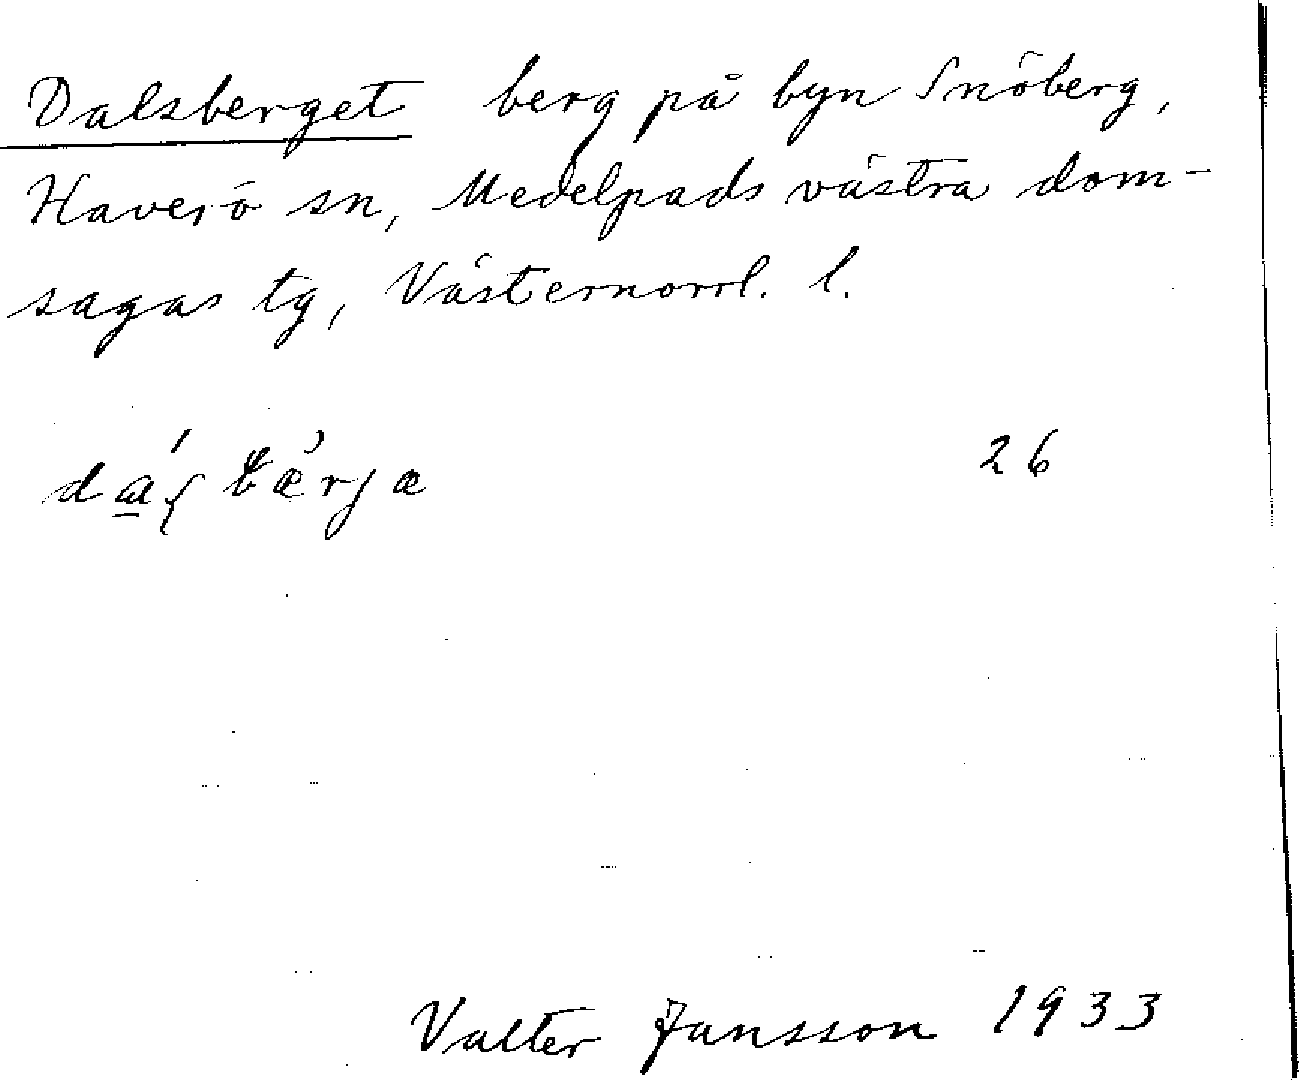 Dalsberget berg på byn Snöberg,
Haverö sn, Medelpads västra dom-
sagas tg, Västernorrl. l.
26
Valter Jansson 1933